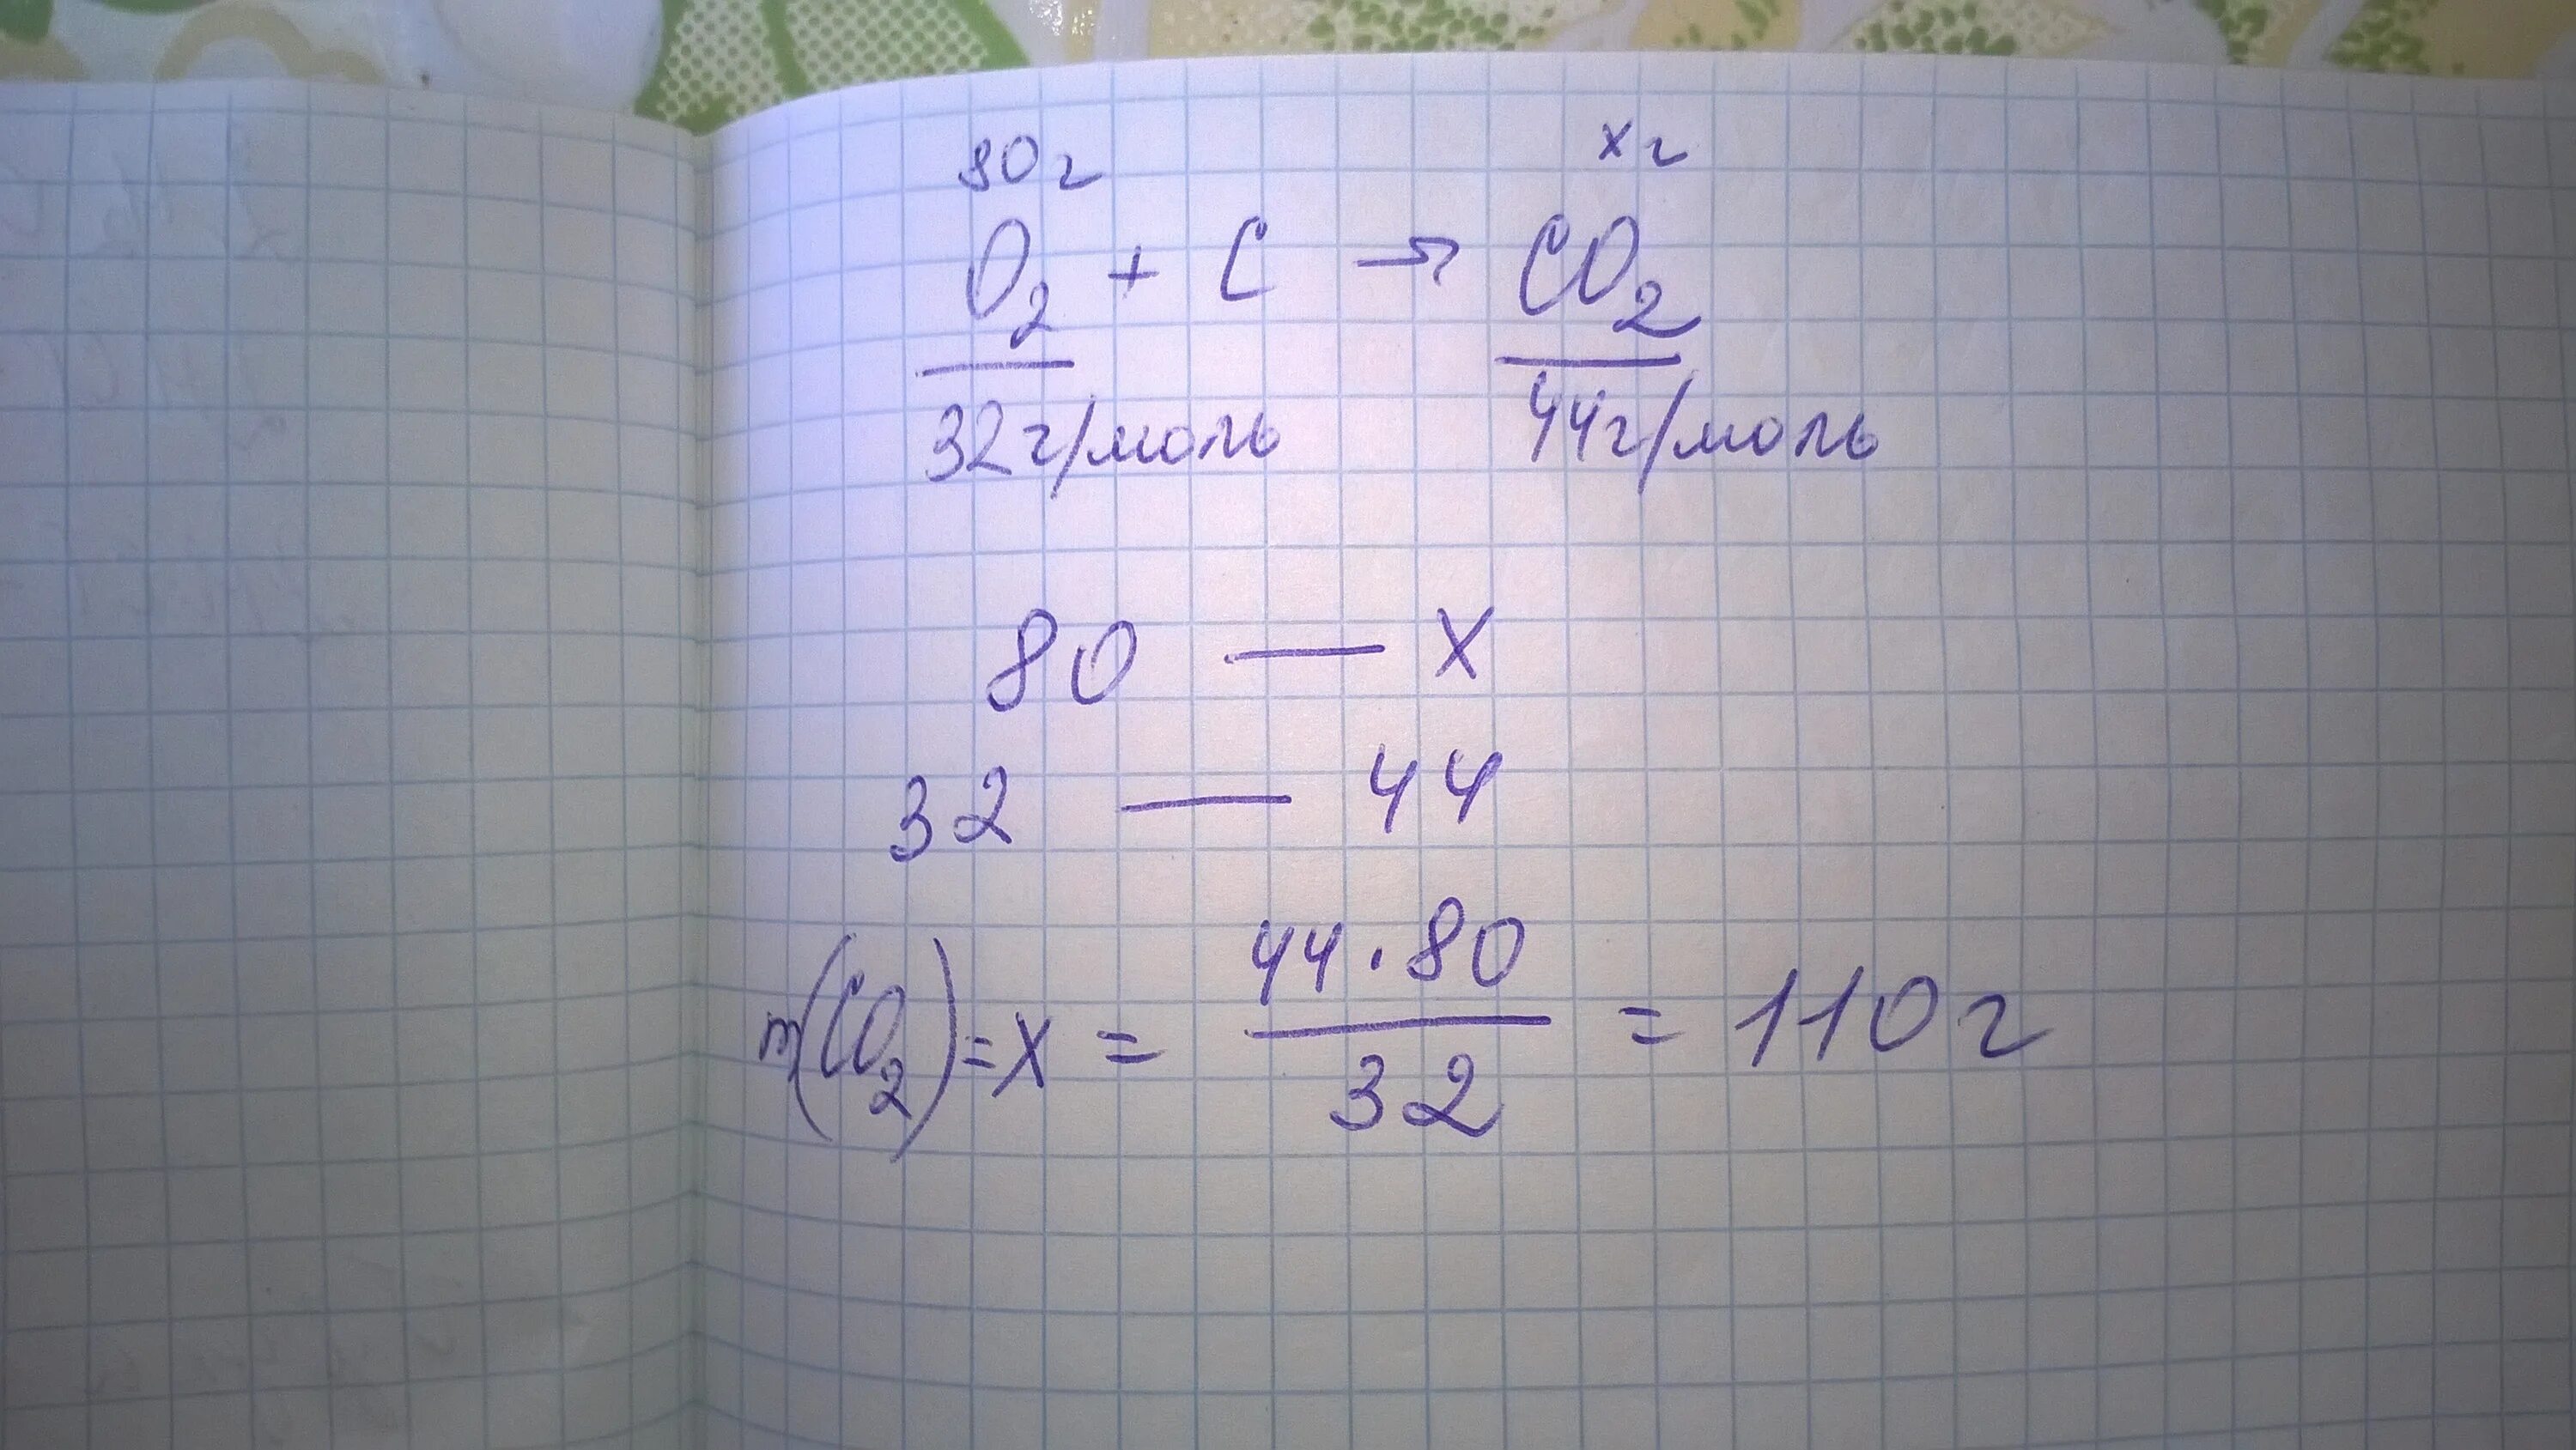 80г хг
O₂ + C → CO₂
32г/моль 44г/моль
80 — x
32 — 44
m(CO₂) = x = 44·80/32 = 110г